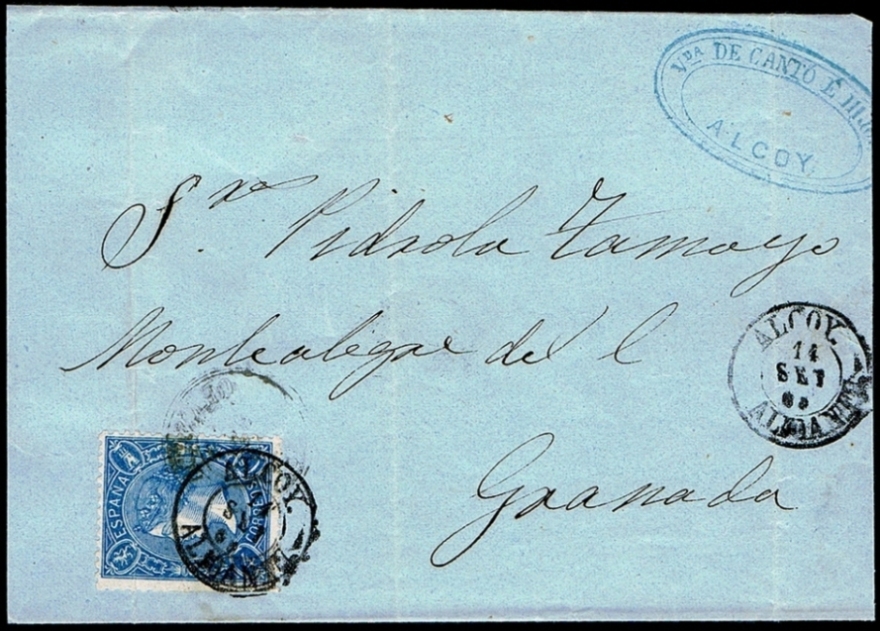 Vda DE CANTÓ É HIJ
ALCOY.
Sres Pidrola Tamayo
Montealegre del C
Granada
ALCOY.
14
SET
65
ALICANTE
ESPAÑA
ALCOY.
ALICANTE